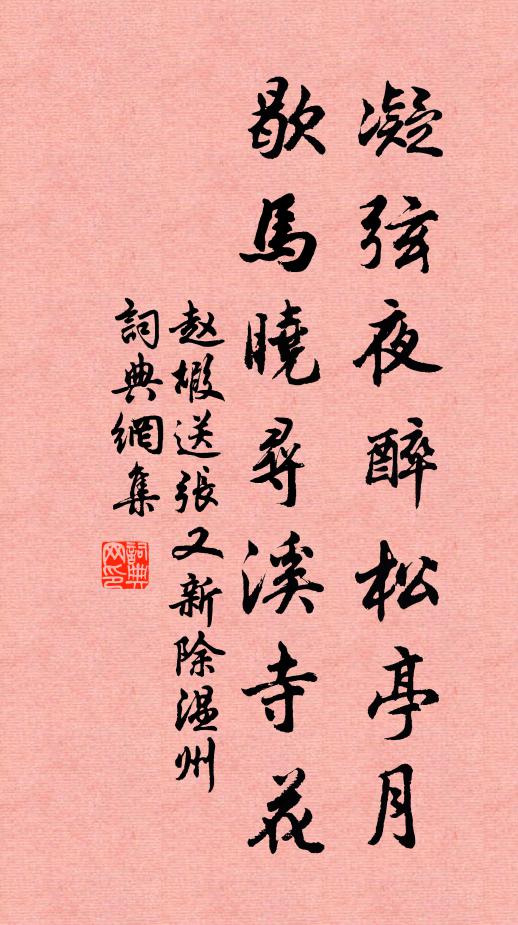 凝弦夜醉松亭月
歇馬曉尋溪寺花
赵嘏送張又新除温州
詞典網集
詞典網印